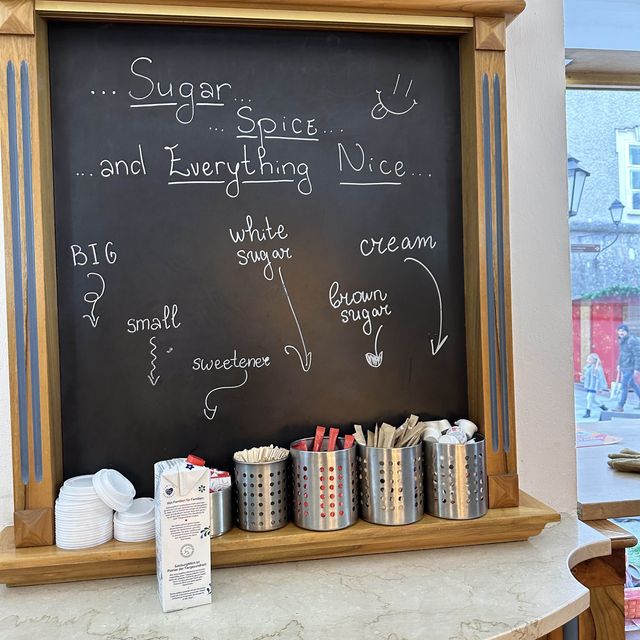 ... Sugar...
... Spice....
...and Everything Nice...
BIG
small
sweetener
white
sugar
brown
sugar
cream